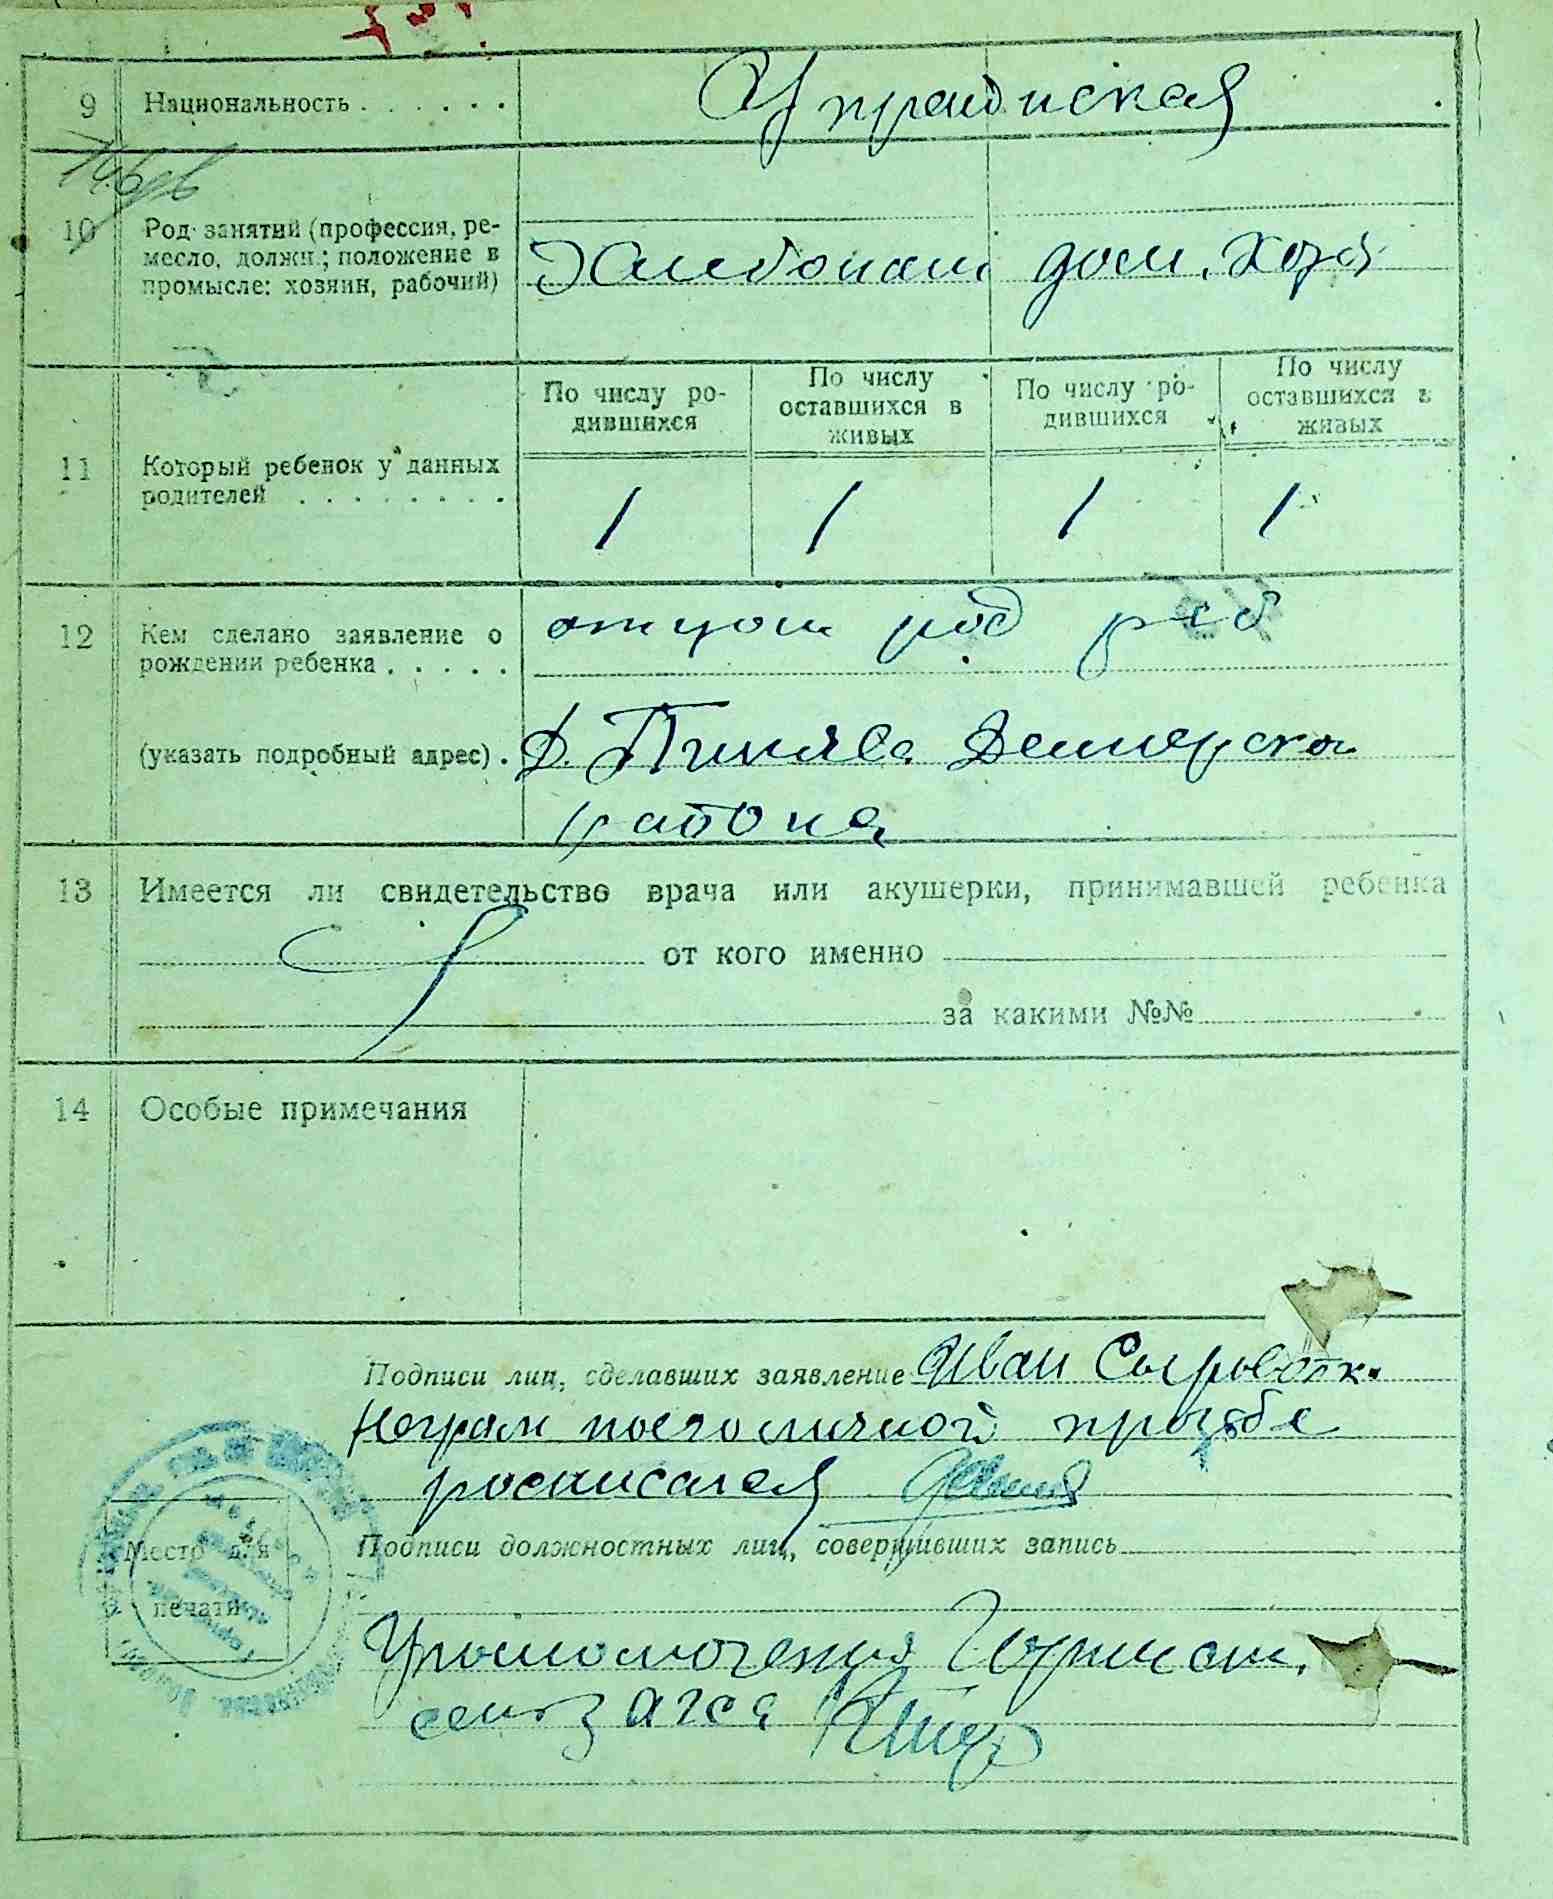 9 Национальность . . . . . . Украинская
10 Род занятий (профессия, ре-
месло, должн.; положение в
промысле: хозяин, рабочий)
Хлебопаш дом. хозя
11 Который ребенок у данных
родителей . . . . . . . .
По числу ро-
дившихся
По числу
оставшихся в
живых
По числу ро-
дившихся
По числу
оставшихся в
живых
1 1 1 1
12 Кем сделано заявление о
рождении ребенка . . . . .
отцом род реб
(указать подробный адрес) .
района
13 Имеется ли свидетельство врача или акушерки, принимавшей ребенка
от кого именно
за какими №№
14 Особые примечания
Подписи лиц, сделавших заявление Иван
неграм по его личной прозбе
росписался
Подписи должностных лиц, совершивших запись
Место для
печати